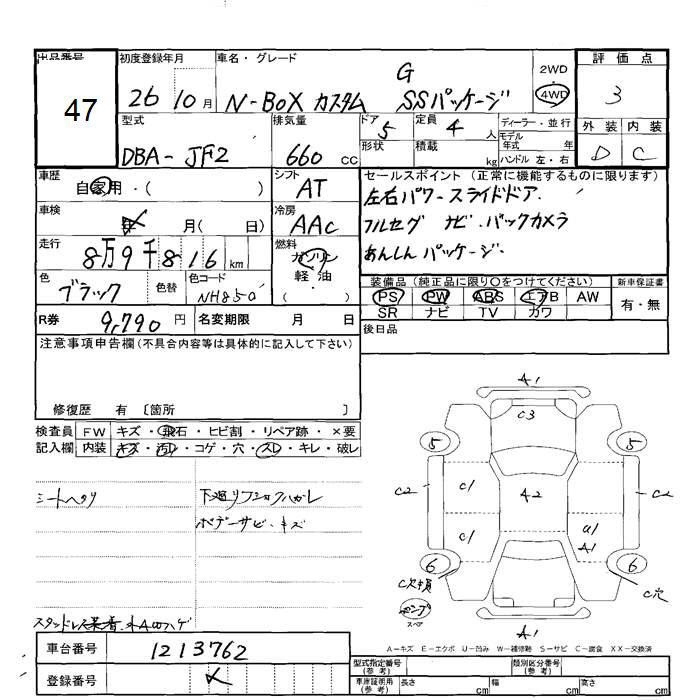 出品番号 初度登録年月 車名・グレード 評価点
47
26 10月 N-BOX カスタム G SSパッケージ 2WD 4WD 3
型式 排気量 ドア 定員 ディーラー・並行 外装 内装
DBA-JF2 660 cc 5 4 人 モデル年式 年 D C
形状 積載 kg ハンドル 左・右
車歴 自家用・( ) シフト AT
セールスポイント (正常に機能するものに限ります)
左右パワースライドドア.
フルセグ ナビ.バックカメラ
あんしんパッケージ.
車検 月( 日) 冷房 AAC
走行 8万9千816 km 燃料 ガソリン 軽油 ・( )
色 ブラック 色替 色コード NH850
装備品 (純正品に限り○をつけてください) 新車保証書
PS PW ABS エアB AW 有・無
SR ナビ TV カワ
R券 9,790 円 名変期限 月 日 後日品
注意事項申告欄(不具合内容等は具体的に記入して下さい)
修復歴 有 〔箇所 〕
検査員 FW キズ・飛石・ヒビ割・リペア跡・×要
記入欄 内装 キズ・汚レ・コゲ・穴・スレ・キレ・破レ
シートヘタリ
下廻リ
ボデーサビ・キズ
A1
C3
5 5
C2 C1 A2 C2
C1 U1
A1
6 6
C穴
A1
A-キズ E-エクボ U-凹み W-補修跡 S-サビ C-腐食 XX-交換済
車台番号 1213762
登録番号
型式指定番号(参考) 類別区分番号(参考)
車庫証明用(参考) 長さ cm 幅 cm 高さ cm